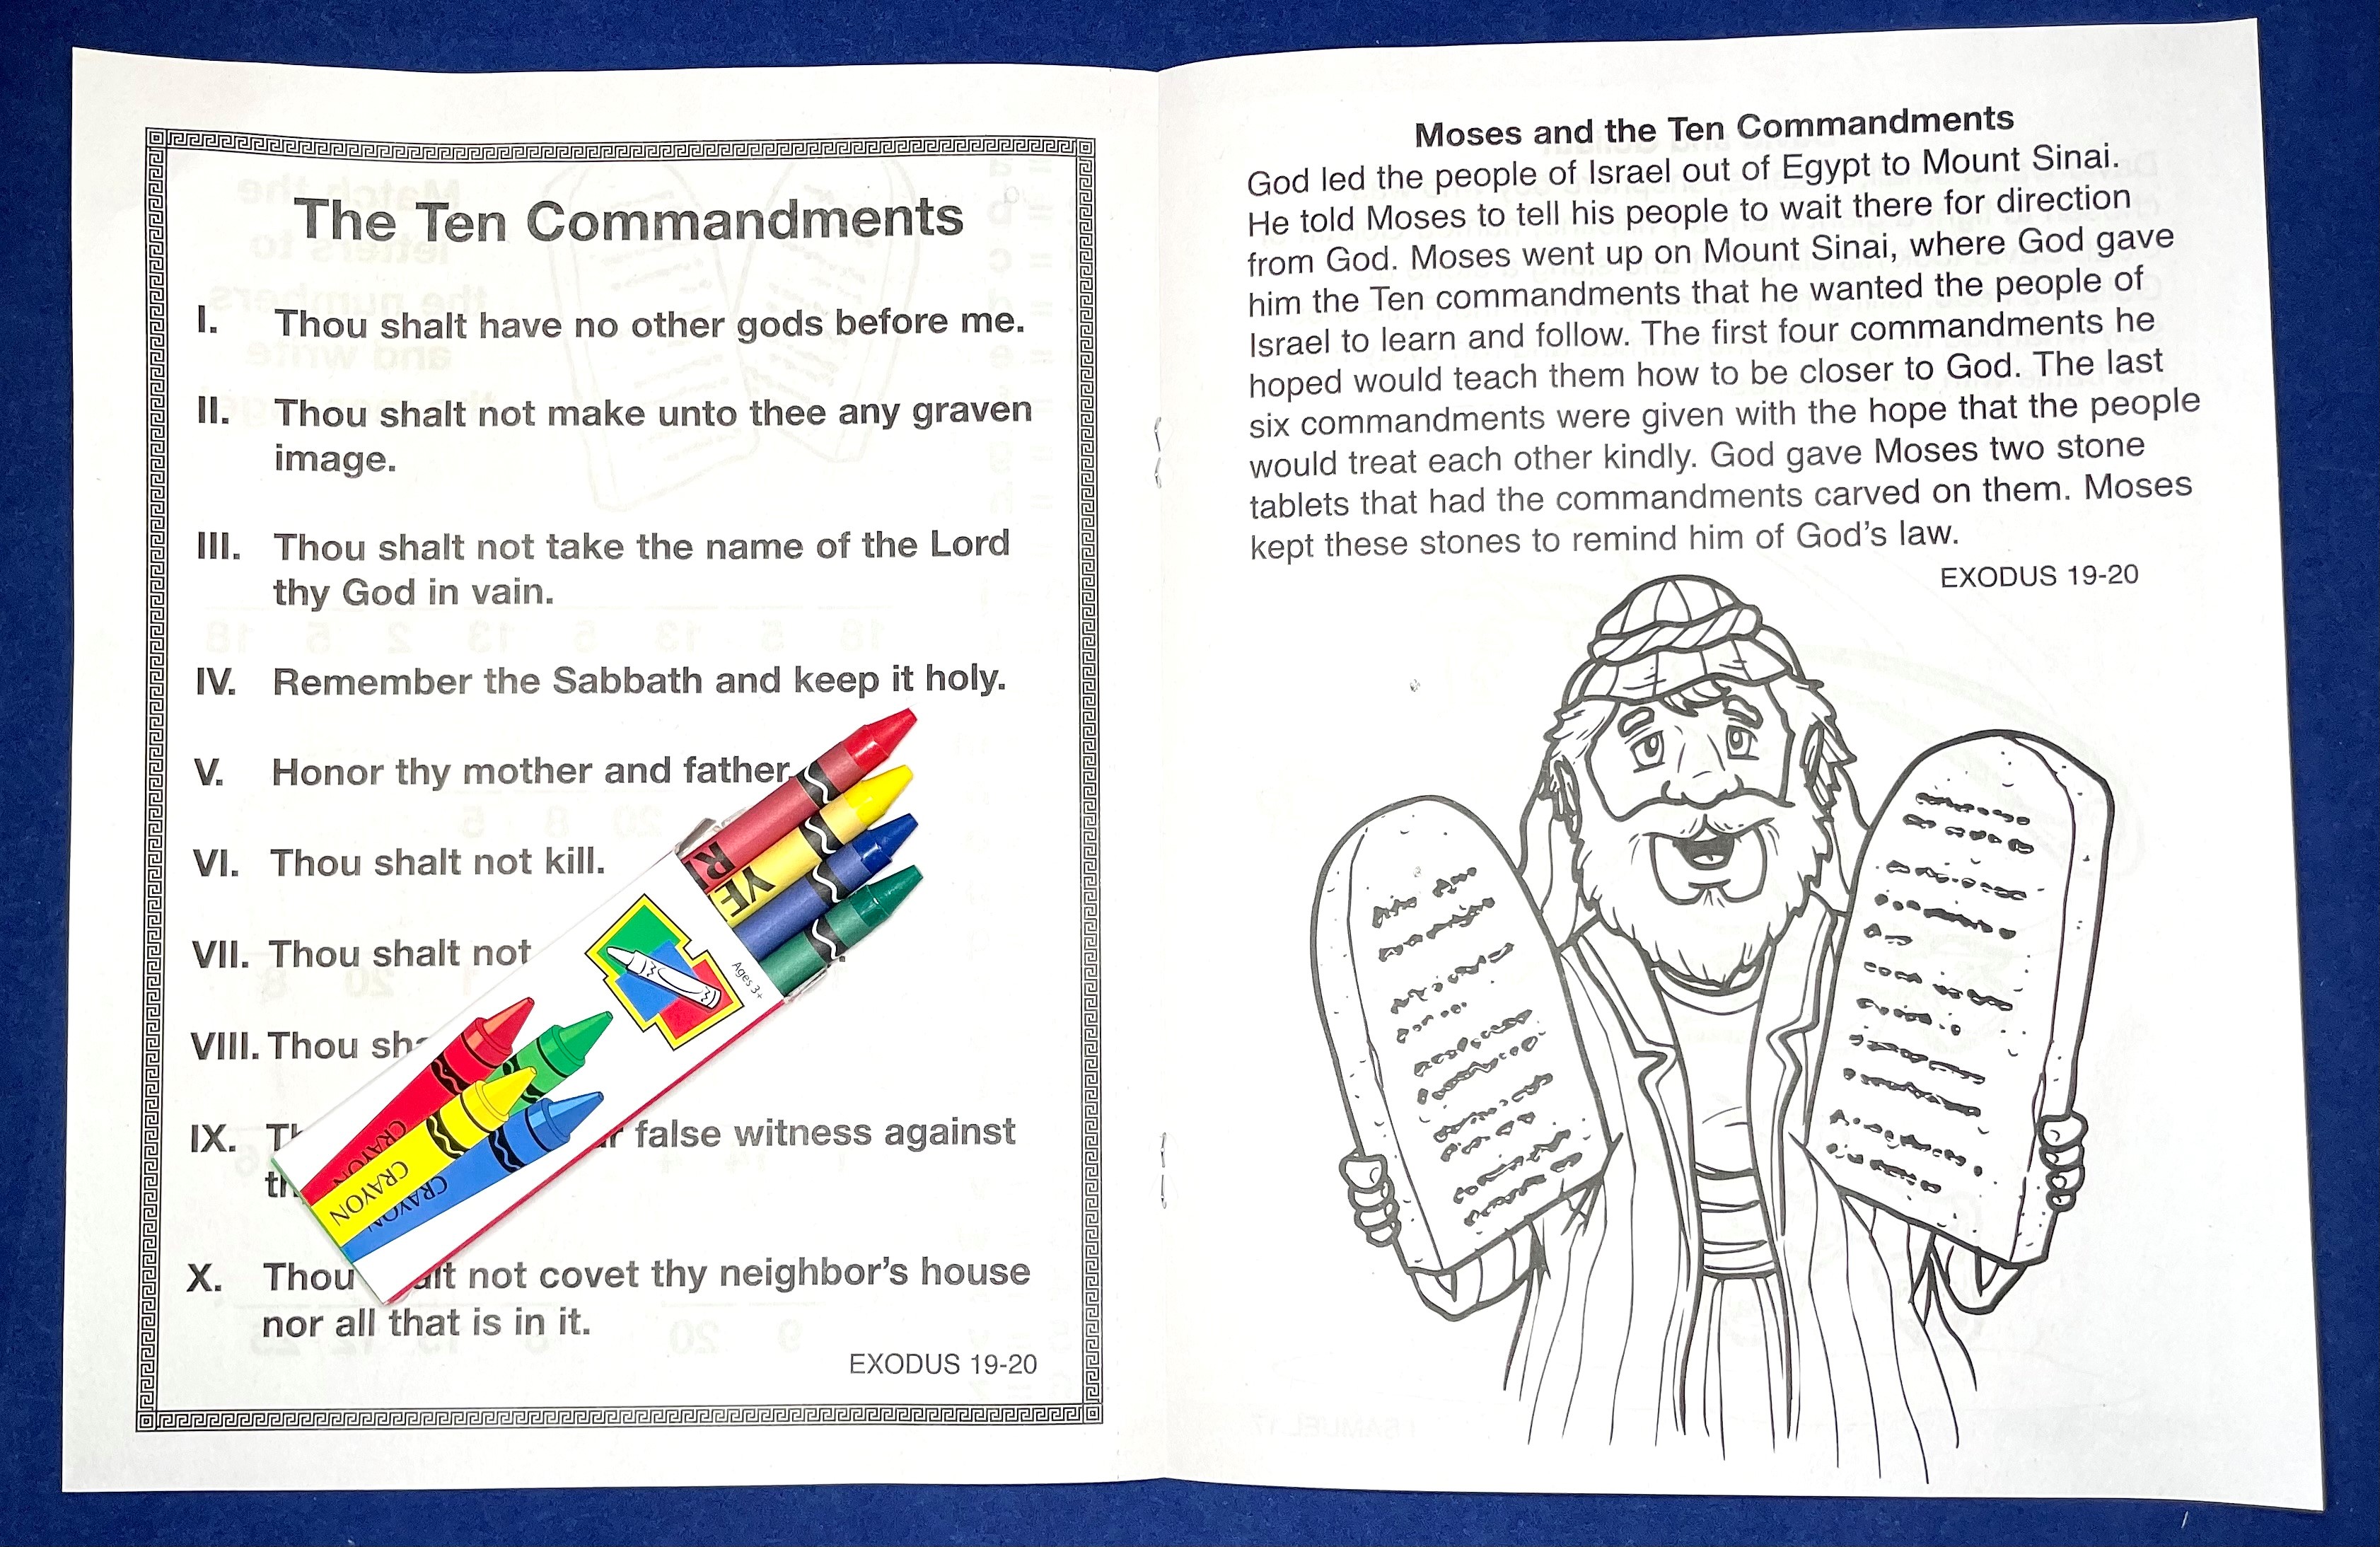 The Ten Commandments
I. Thou shalt have no other gods before me.
II. Thou shalt not make unto thee any graven
image.
III. Thou shalt not take the name of the Lord
thy God in vain.
IV. Remember the Sabbath and keep it holy.
V. Honor thy mother and father.
VI. Thou shalt not kill.
VII. Thou shalt not
VIII. Thou
IX. false witness against
X. Thou not covet thy neighbor's house
nor all that is in it.
EXODUS 19-20
Ages 3+
CRAYON
CRAYON
CRAYON
Moses and the Ten Commandments
God led the people of Israel out of Egypt to Mount Sinai.
He told Moses to tell his people to wait there for direction
from God. Moses went up on Mount Sinai, where God gave
him the Ten commandments that he wanted the people of
Israel to learn and follow. The first four commandments he
hoped would teach them how to be closer to God. The last
six commandments were given with the hope that the people
would treat each other kindly. God gave Moses two stone
tablets that had the commandments carved on them. Moses
kept these stones to remind him of God's law.
EXODUS 19-20